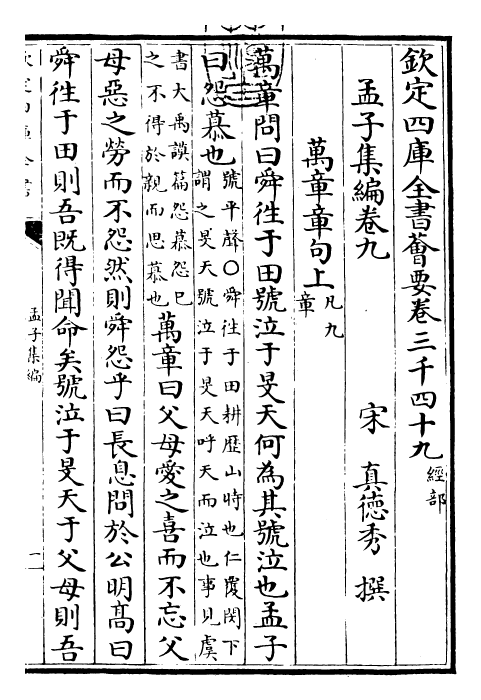 欽定四庫全書薈要卷三千四十九 經部
孟子集編卷九
宋 真德秀 撰
萬章章句上 凡九章
萬章問曰舜往于田號泣于旻天何為其號泣也孟子
曰怨慕也 號平聲○舜往于田耕歷山時也仁覆閔下謂之旻天號泣于旻天呼天而泣也事見虞
書大禹謨篇怨慕怨己之不得於親而思慕也 萬章曰父母愛之喜而不忘父
母惡之勞而不怨然則舜怨乎曰長息問於公明髙曰
舜往于田則吾既得聞命矣號泣于旻天于父母則吾
孟子集編
一